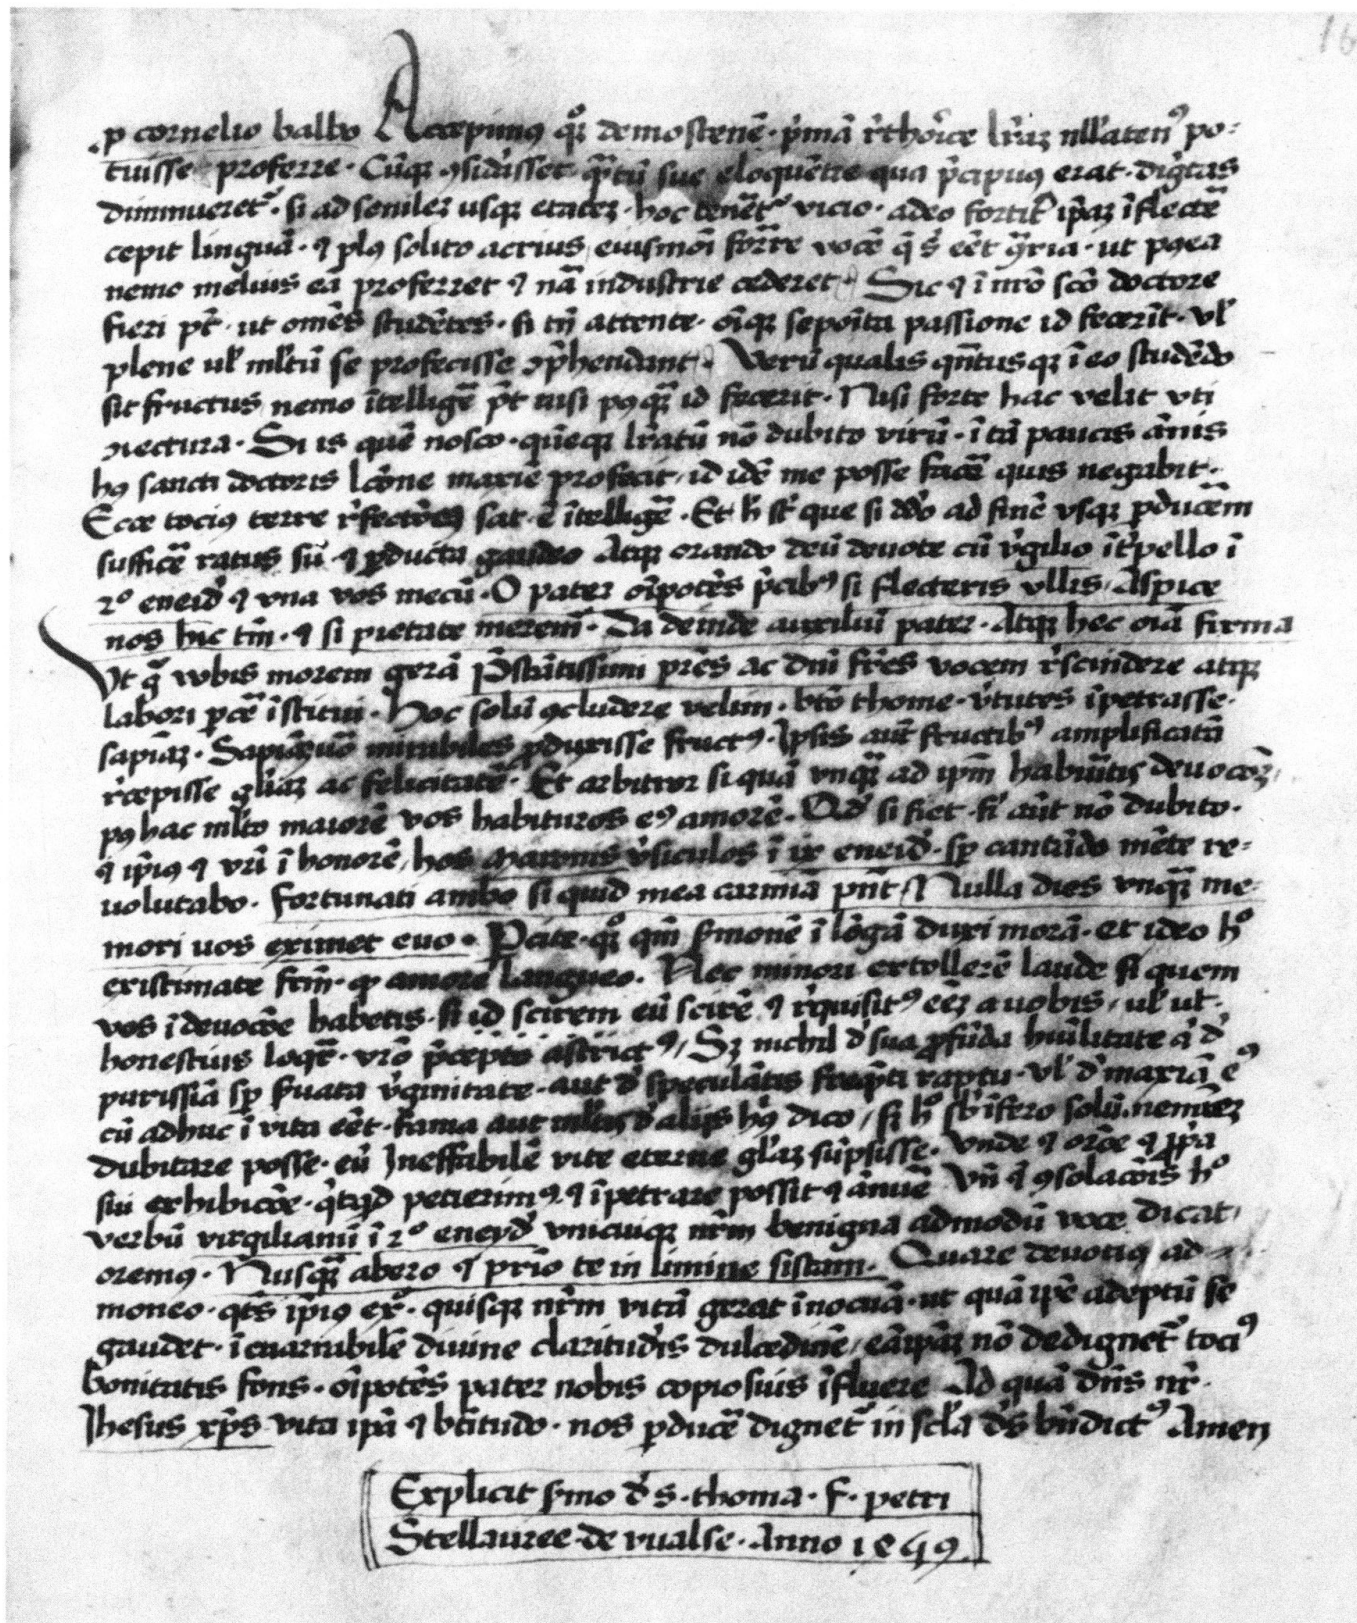 16
p cornelio balbo Accepimꝰ qͦ demostenē · p̄mā rͥthorice lr̄aꝫ nllatenꝰ po-
tuisse proferre · Cūqꝫ ꝯsid̓asset · qͣtū sue eloquētie qua p̄cipuus erat · dig̓tas
diminueretᷣ · si ad senileꝫ usqꝫ etateꝫ · hoc tenētᷣ vicio · adeo fortit̓ ip̄aꝫ īflectē
cepit linguā · ⁊ plꝰ solito acrius eiusmōi for̄re vocē q̄ s̓ eēt ꝯ̄ria · ut pꝰea
nemo melius eā proferret ⁊ nā industrie cederet Sic ⁊ ī nrō scō doctore
fieri pt̄ · ut omēs studētes · si tn̄ attente · oīqꝫ sepoīta passione id fecerīt · vl̓
plene ul̓ ml̓tū se profecisse ꝯp̄hendant · Verū qualis qn̄tusqꝫ ī eo studēdo
sit fructus nemo ītelligē pt̄ nisi pꝰqꝫ id fecerit · Nisi forte hac velit uti
ꝯiectura · Si is quē nosco · quēqꝫ lr̄atū nō dubito virū · ī tā paucis ānis
hꝰ sancti doctoris lcōne maxīe profecit · id idē me posse facē quis negabit ·
Ecce tocius terre rͥfectōꝫ sat · ē ītelligē · Et h̓ st̓ que si ad finē usqꝫ ꝑducēm
sufficē ratus sū · ⁊ ꝑducta gaudeo Atqꝫ orando deū deuote cū v̓gilio īt̓pello ī
2º eneid̓ ⁊ una vos mecū · O pater oīpotēs p̄cibꝰ si flecteris ullis · Aspice
nos hic tm̄ · ⁊ si pietate meremᷣ · Da deinde auxiliū pater · Atqꝫ hec oīa firma
Ut gͦ vobis morem gerā P̄stātissimi pr̄es ac dn̄i fr̄es vocem rͥscindere atqꝫ
labori ꝑcē īstitui · Hoc solū ꝯcludere velim · btō thome · v̓tutes īpetrasse ·
sapīaꝫ · Sapīaꝫ uō mirabiles ꝓduxisse fructꝰ · Ipsis aut̄ fructibꝰ amplificatā
rͥcepisse gl̓iaꝫ ac felicitatē · Et arbitror si quā unqꝫ ad ip̄m habuistis deuocōꝫ
pꝰ hac ml̓to maiorē vos habituros eꝰ amorē · Qd̓ si fiet · fi̓ aūt nō dubito ·
⁊ ip̄iꝰ ⁊ vr̄i ī honorē hos maronis v̓siculos ī ix eneid̓ · sp̄ cantādo mēte re-
uolutabo · Fortunati ambo si quid mea carmīa pn̄t Nulla dies unqꝫ me-
mori uos eximet euo · Pcite · qͦ qm̄ s̓monē ī lōgā duxi morā · et ideo hº
existimate frm̄ · qꝫ amore langueo · Nec minori extollerē laude si quem
vos ī deuocōe habetis · si id scirem eū scire ⁊ rͥquisitꝰ eēꝫ a uobis · ul̓ ut ·
honestius loqr̄ · vr̄o p̄cepto astrictꝰ Sꝫ nichil d̓ sua ꝓfūda hūilitate aͥ d̓
purissiā sp̄ s̓uata v̓ginitate · aut d̓ speculātis freqn̄ti raptu · vl̓ d̓ maxīa eꝰ
cū adhuc ī vita eēt · fama aut ml̓tis d̓ alijs hꝰ dico si hº sb̓īfero solū nemīeꝫ
dubitare posse · eū Ineffabilē vite eterne gl̓iaꝫ sūpsisse · Unde ⁊ orōe ⁊ ꝓp̓a
sui exhibicōe · qͥcqͥd petierimꝰ · ⁊ īpetrare possit ⁊ ānuē Un̄ ⁊ ꝯsolacōis hº
verbū virgilianū ī 2º eneyd̓ unicuiqꝫ nr̄m benigna admodū voce dicat
oremꝰ · Nusqꝫ abero ⁊ pr̄io te in limine sistam · Quare deuotiꝰ ad-
moneo · qt̄s ip̄iꝰ exº · quisqꝫ nr̄m vitā gerat īnocuā · ut quā ip̄e adeptū se
gaudet · īenarrabilē diuine claritud̓is dulcedinē eāip̄aꝫ nō dedignetᷣ tociꝰ
bonitatis fons · oīpotēs pater nobis copiosius īfluere Ad quā dn̄s nr̄ ·
Jhesus xp̄s vita ip̄a ⁊ btītudo · nos ꝑducē dignetᷣ in scl̓a d̓s bn̄dictꝰ Amen
Explicit s̓mo d̓ s · thoma · F · petri
Stellauree · de rualse · Anno 1459